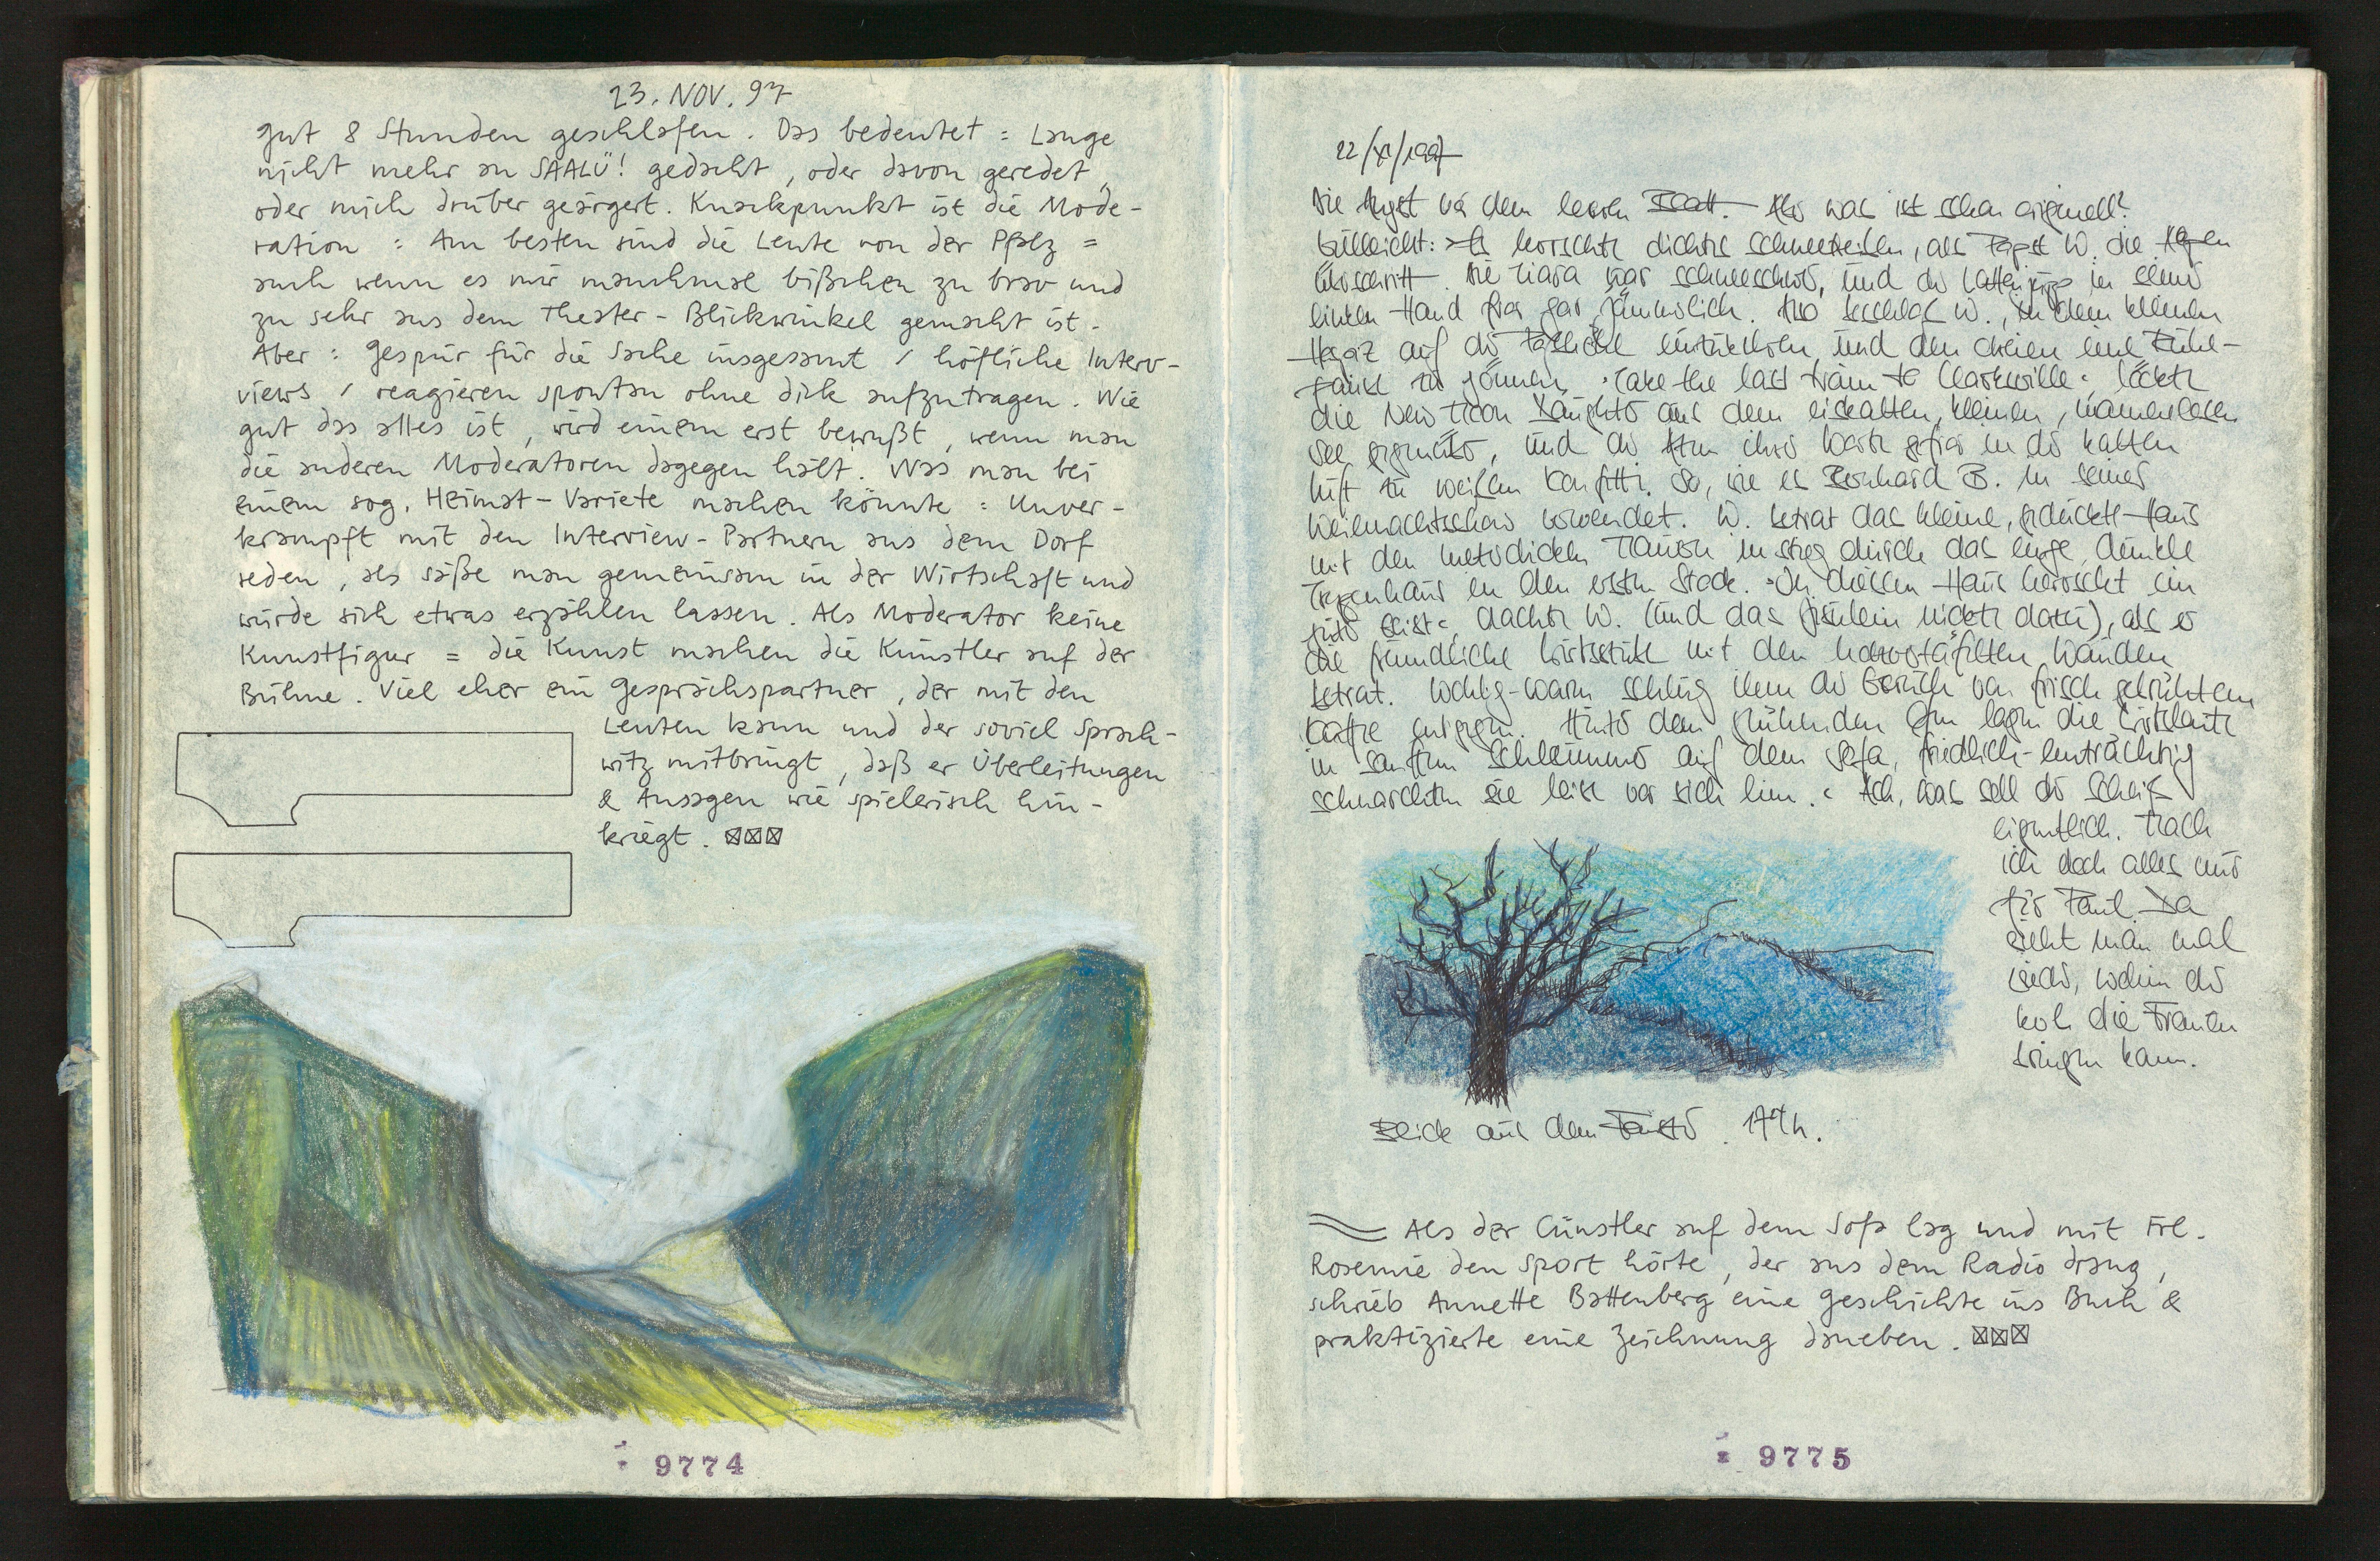 23. NOV. 97
gut 8 Stunden geschlafen. Das bedeutet: Lange
nicht mehr an SAALÜ! gedacht, oder davon geredet,
oder mich drüber geärgert. Knackpunkt ist die Mode-
ration: Am besten sind die Leute von der Pfalz =
auch wenn es mir manchmal bißchen zu brav und
zu sehr aus dem Theater-Blickwinkel gemacht ist.
Aber: Gespür für die Sache insgesamt / höfliche Interv-
views / reagieren spontan ohne dick aufzutragen. Wie
gut das alles ist, wird einem erst bewußt, wenn man
die anderen Moderatoren dagegen hält. Was man bei
einem sog. Heimat-Variete machen könnte: Unver-
krampft mit den Interview-Partnern aus dem Dorf
reden, als säße man gemeinsam in der Wirtschaft und
würde sich etwas erzählen lassen. Als Moderator keine
Kunstfigur = die Kunst machen die Künstler auf der
Bühne. Viel eher ein Gesprächspartner, der mit den
Leuten kann und der soviel Sprach-
witz mitbringt, daß er Überleitungen
& Ansagen wie spielerisch hin-
kriegt. ☒☒☒
9774
22/XI/1997
Die Angst vor dem leeren Blatt. Also was ist schon originell?
Vielleicht: >Es herrschte dichtes Schneetreiben, als Papst W. die
überschritt. Die Tiara war schneeschwer, und der in seiner
linken Hand fror gar jämmerlich. Also beschloß W., dem kleinen
auf der einzukehren und den eine
pause zu gönnen. >Take the last train to Clarksville< löckte
die New Moon Daughter aus dem eiskalten, kleinen, namenlosen
See gegenüber, und der Atem ihrer Worte gefror in der kalten
Luft zu weißem Konfetti. So, wie es Bernhard B. in seiner
Weihnachtsshow verwendet. W. betrat das kleine, geduckte Haus
mit den meterdicken Mauern und stieg durch das enge, dunkle
Treppenhaus in den ersten Stock. >In diesem Haus herrscht ein
guter Geist< dachte W. (und das nickte dazu), als er
die freundliche Wirtsstube mit den holzvertäfelten Wänden
betrat. Wohlig-warm schlug ihm der Geruch von frisch gebrühtem
Kaffee entgegen. Hinter dem glühenden Ofen lagen die Wirtsleute
in sanftem Schlummer auf dem Sofa, friedlich-einträchtig
schnarchten sie leise vor sich hin.< Ach, was soll der Scheiß
eigentlich. Mach
ich doch alles nur
für Paul. Da
sieht man mal
wieder, wohin der
die Frauen
bringen kann.
Blick aus dem Fenster. 17 h.
Als der Cünstler auf dem Sofa lag und mit Frl.
Rosemie den Sport hörte, der aus dem Radio drang,
schrieb Annette Battenberg eine Geschichte ins Buch &
praktizierte eine Zeichnung daneben. ☒☒☒
9775